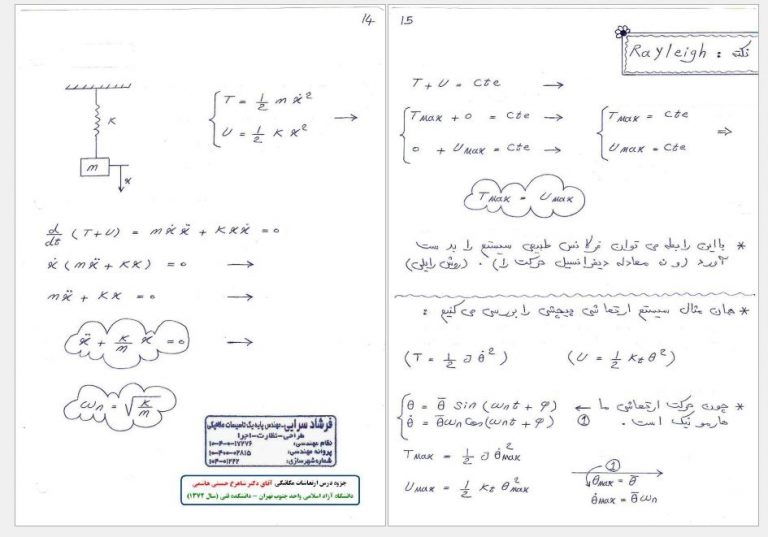 14
K
m
x
T = 1/2 m ẋ²
U = 1/2 K x² →
d/dt (T+U) = mẋẍ + Kxẋ = 0
ẋ (mẍ + Kx) = 0 →
mẍ + Kx = 0 →
ẍ + K/m x = 0 →
ωn = √(K/m)
فرشاد سرایی - مهندس پایه یک تاسیسات مکانیکی
طراحی - نظارت - اجرا
نظام مهندسی: ۱۰-۴-۰۰-۱۷۲۷۶
پروانه مهندسی: ۱۰-۴۰۰-۰۲۸۱۵
شماره شهرسازی: ۱۰۴-۰۱۲۴۲
جزوه درس ارتعاشات مکانیکی آقای دکتر شاهرخ حسینی هاشمی
دانشگاه آزاد اسلامی واحد جنوب تهران - دانشکده فنی (سال ۱۳۷۲)
15
نکته : Rayleigh
T + U = cte →
Tmax + 0 = cte →
0 + Umax = cte →
Tmax = cte
Umax = cte ⇒
Tmax = Umax
* با این رابطه می توان فرکانس طبیعی سیستم را بدست
آورد (و نه معادله دیفرانسیل حرکت را). (روش رایلی)
* همان مثال سیستم ارتعاشی پیچشی را بررسی می کنیم :
(T = 1/2 J θ̇²) (U = 1/2 Kt θ²)
* چون حرکت ارتعاشی ما ←
هارمونیک است . ①
θ = θ̄ Sin (ωnt + φ)
θ̇ = θ̄ωn Cos(ωnt + φ)
Tmax = 1/2 J θ̇²max
Umax = 1/2 Kt θ²max
①
θmax = θ̄
θ̇max = θ̄ωn